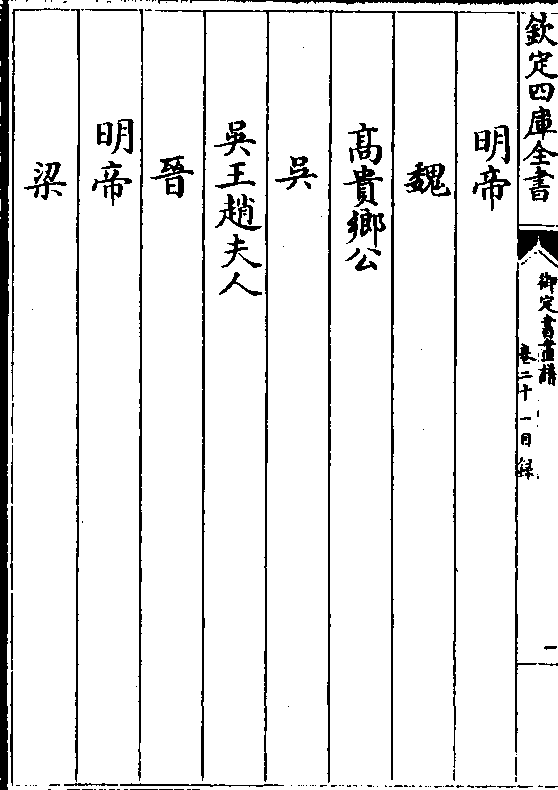 欽定四庫全書
御定書畫譜
卷二十一目録
一
明帝
魏
髙貴鄉公
吳
吳王趙夫人
晉
明帝
梁